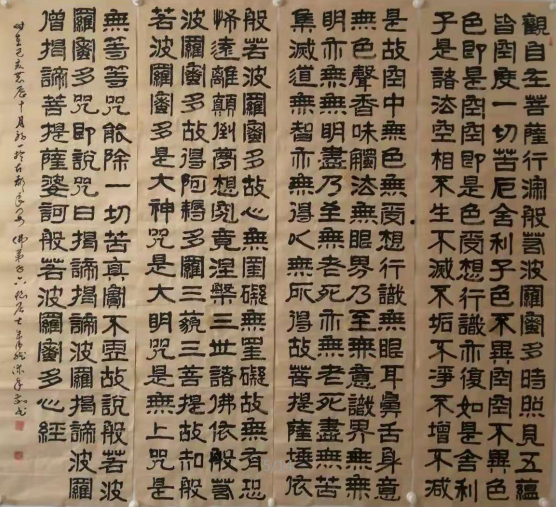 觀自在菩薩行深般若波羅蜜多時照見五蘊
皆空度一切苦厄舍利子色不異空空不異色
色即是空空即是色受想行識亦復如是舍利
子是諸法空相不生不滅不垢不淨不增不減
是故空中無色無受想行識無眼耳鼻舌身意
無色聲香味觸法無眼界乃至無意識界無無
明亦無無明盡乃至無老死亦無老死盡無苦
集滅道無智亦無得以無所得故菩提薩埵依
般若波羅蜜多故心無罣礙無罣礙故無有恐
怖遠離顛倒夢想究竟涅槃三世諸佛依般若
波羅蜜多故得阿耨多羅三藐三菩提故知般
若波羅蜜多是大神咒是大明咒是無上咒是
無等等咒能除一切苦真實不虛故說般若波
羅蜜多咒即說咒曰揭諦揭諦波羅揭諦波羅
僧揭諦菩提薩婆訶般若波羅蜜多心經
時在己亥 十月初一於 佛弟子 居士